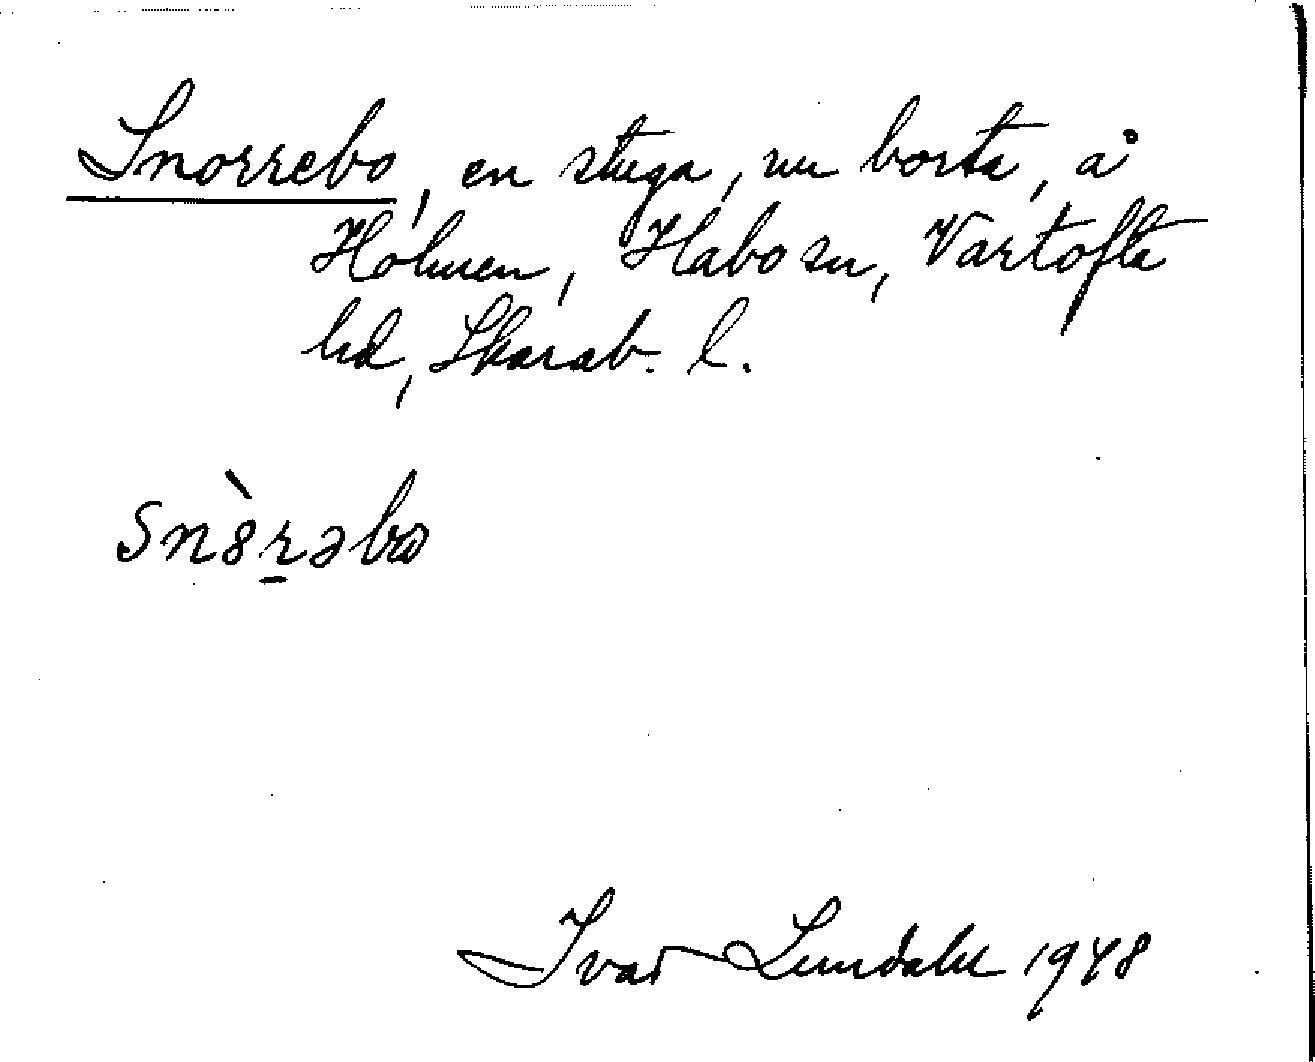 Snorrebo, en stuga, nu borta, å
Holmen, Habo sn, Vartofta
hd, Skarab. l.
Sn8̀ṟəbω
Ivar Lundahl 1948